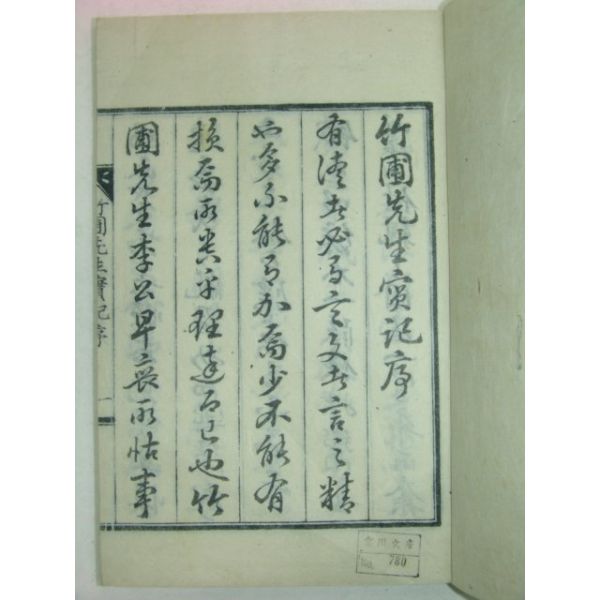 竹圃先生實記序
有德者必有言文者言之精
也多不能有加焉少不能有
損焉所貴乎理達而已也竹
圃先生李公早喪所怙事
竹圃先生實記序
一
No. 780